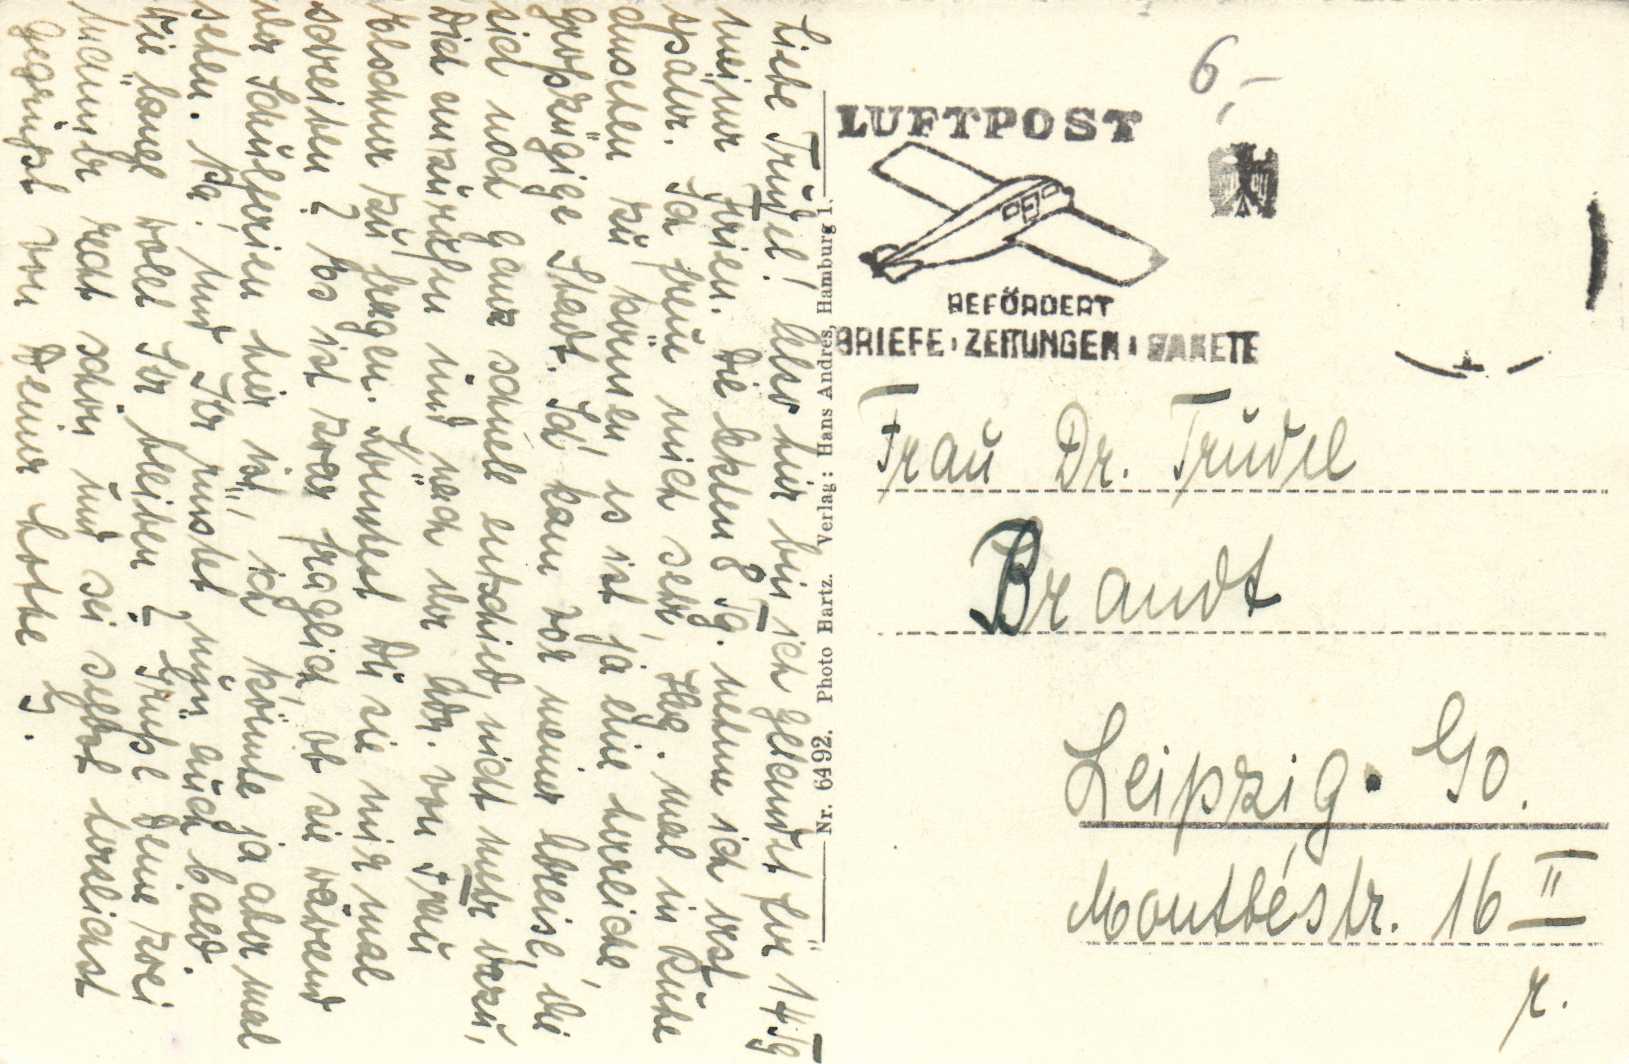 Liebe Trudel! Also hier bin ich gelandet für 14 Tg
meiner Ferien. Die letzten 8 Tg. nehme ich erst
später. Ich freue mich sehr, Hbg. mal in Ruhe
ansehen zu können, es ist ja eine herrliche,
großzügige Stadt. Ich kam vor meiner Abreise, die
sich noch ganz schnell entschied, nicht mehr dazu,
Dich anzurufen und nach der Adr. von Frau
zu fragen. Könntest Du sie mir mal
schreiben? Es ist zwar fraglich, ob sie während
der Schulferien hier ist, ich könnte ja aber mal
sehen. Na, und Ihr rüstet nun auch bald.
Wie lange wollt Ihr bleiben? Grüße Deine zwei
Männer recht schön und sei selbst herzlichst
gegrüßt von Deiner Lotte G.
Nr. 6492. Photo Bartz. Verlag: Hans Andres, Hamburg 1.
6,-
LUFTPOST
BEFÖRDERT
BRIEFE · ZEITUNGEN · PAKETE
Frau Dr. Trudel
Brandt
Leipzig. Go.
Montbéstr. 16 II
r.